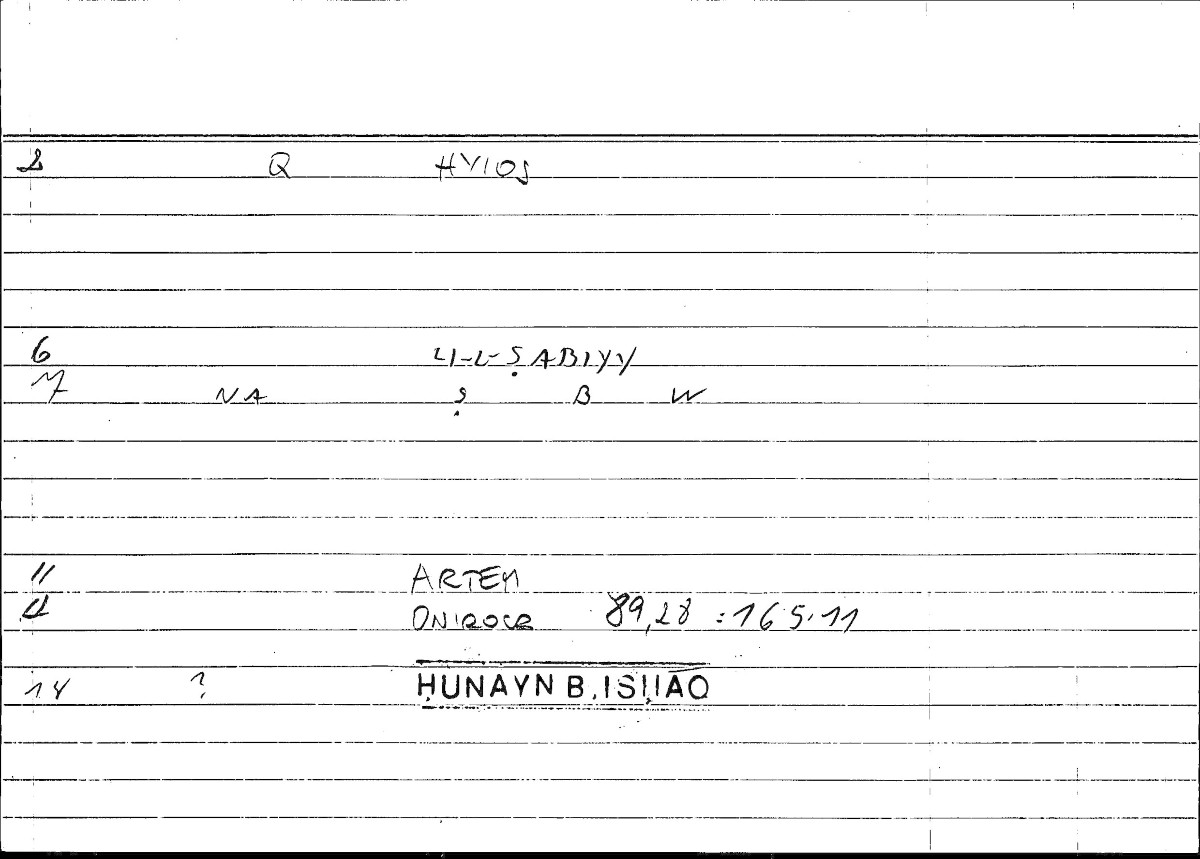 2 Q HYIOS
6 LI-L-ṢABIYY
7 NA Ṣ B W
11 ARTEM
12 ONIROCR 89,28 : 165.11
14 ? ḤUNAYN B. ISḤĀQ